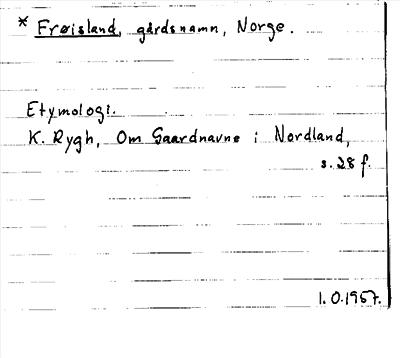 * Frøisland, gårdsnamn, Norge.
Etymologi.
K. Rygh, Om Gaardnavne i Nordland,
s. 28 f.
I.O. 1957.